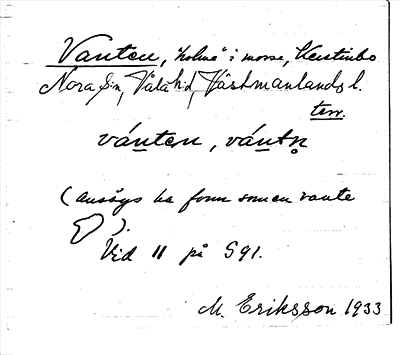 Vanten, "holme" i mosse, Kerstinbo
Nora Sn, Våla hd, Västmanlands l.
terr.
vánten, vántn̥
(ansågs ha form som en vante
).
Vid 11 på S 91.
M. Eriksson 1933